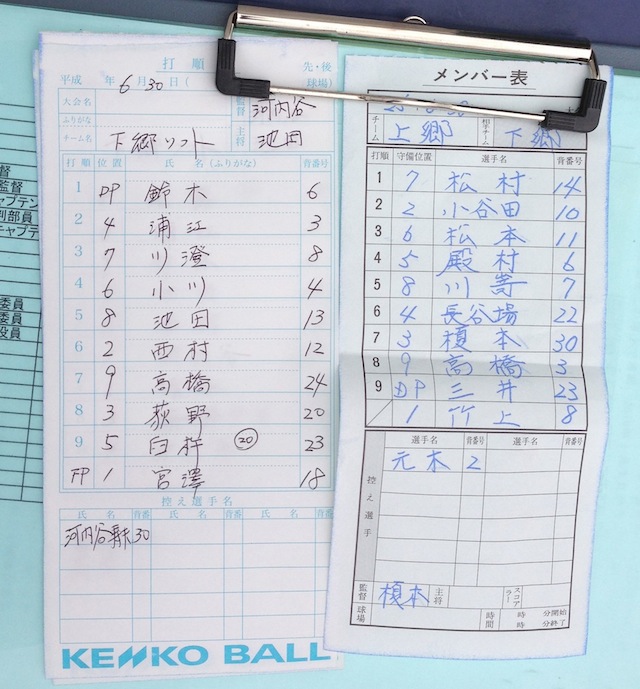 打順 先・後
平成 年 6 月 30 日 ( 球場 )
大会名 監督 河内谷
ふりがな
チーム名 下郷ソフト 主将 池田
打順 位置 氏名(ふりがな) 背番号
1 DP 鈴木 6
2 4 浦江 3
3 7 川澄 8
4 6 小川 4
5 8 池田 13
6 2 西村 12
7 9 高橋 24
8 3 荻野 20
9 5 臼杵 ⑳ 23
FP 1 宮澤 18
控え選手名
氏名 背番 氏名 背番 氏名 背番
河内谷 30
KENKO BALL
メンバー表
チーム 上郷 相手チーム 下郷
打順 守備位置 選手名 背番号
1 7 松村 14
2 2 小谷田 10
3 6 松本 11
4 5 殿村 6
5 8 川嵜 7
6 4 長谷場 22
7 3 榎本 30
8 9 高橋 3
9 DP 三井 23
1 竹上 8
控え選手 選手名 背番号 選手名 背番号
元木 2
監督 榎本 主将 スコアラー
球場 時 分開始
時間 時 分終了
督
監督
キャプテン
判部員
キャプテ
委員
委員
役員